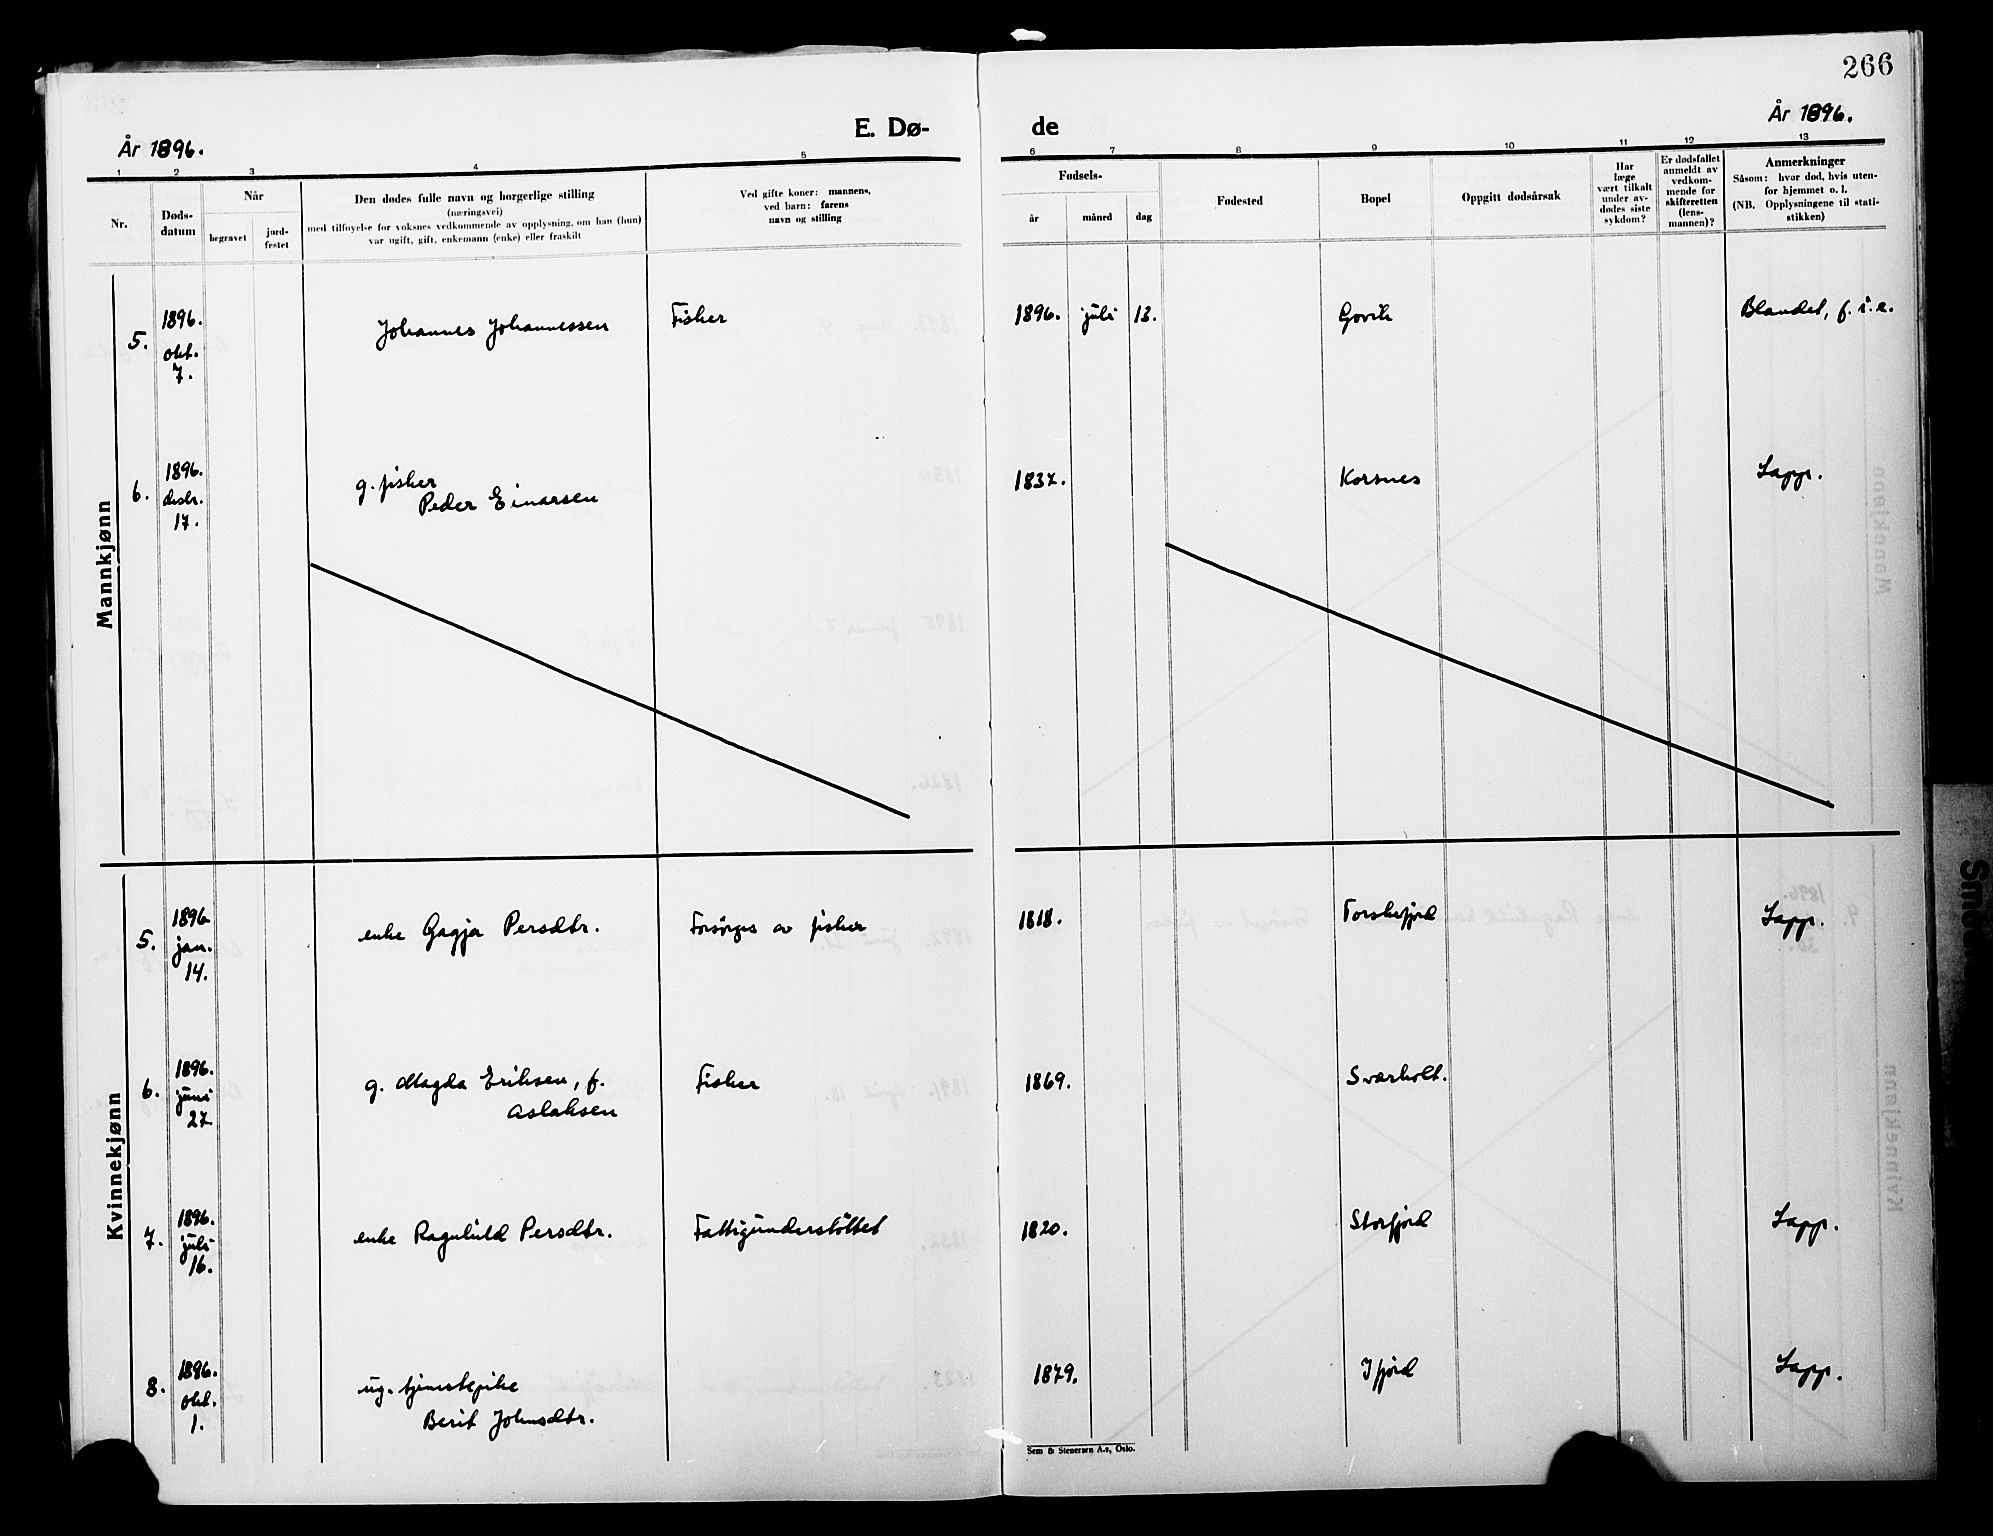 266
År 1896.
E. Dø-
de
År 1896.
1 2 3 4 5
6 7 8 9 10 11 12 13
Nr.
Døds-
datum
Når
begravet
jord-
festet
Den dødes fulle navn og borgerlige stilling
(næringsvei)
med tilføyelse for voksnes vedkommende av opplysning, om han (hun)
var ugift, gift, enkemann (enke) eller fraskilt
Ved gifte koner: mannens,
ved barn: farens
navn og stilling
Fødsels-
år
måned
dag
Fødested
Bopel
Oppgitt dødsårsak
Har
læge
vært tilkalt
under av-
dødes siste
sykdom?
Er dødsfallet
anmeldt av
vedkom-
mende for
skifteretten
(lens-
mannen)?
Anmerkninger
Såsom: hvor død, hvis uten-
for hjemmet o. l.
(NB. Opplysningene til stati-
stikken)
Mannkjønn
5.
1896.
okt.
7.
Johannes Johannessen
Fisker
1896. juli 13.
Govik
Blandet, f. i. e.
6.
1896.
desbr.
17.
g. fisker
Peder Einarsen
1837.
Korsnes
Lapp.
Kvinnekjønn
5.
1896.
jan.
14.
enke Gagja Persdtr.
Forsörges av fisker
1818.
Torskefjord
Lapp.
6.
1896.
juni
27
g. Magda Eriksen, f.
Aslaksen
Fisker
1869.
Sværholt.
7.
1896.
juli
16.
enke Ragnhild Persdtr.
Fattigunderstöttet
1820.
Storfjord
Lapp.
8.
1896.
okt.
1.
ug. tjenestepike
Berit Johnsdtr.
1879.
Ifjord
Lapp.
Sem & Stenersen A.s, Oslo.